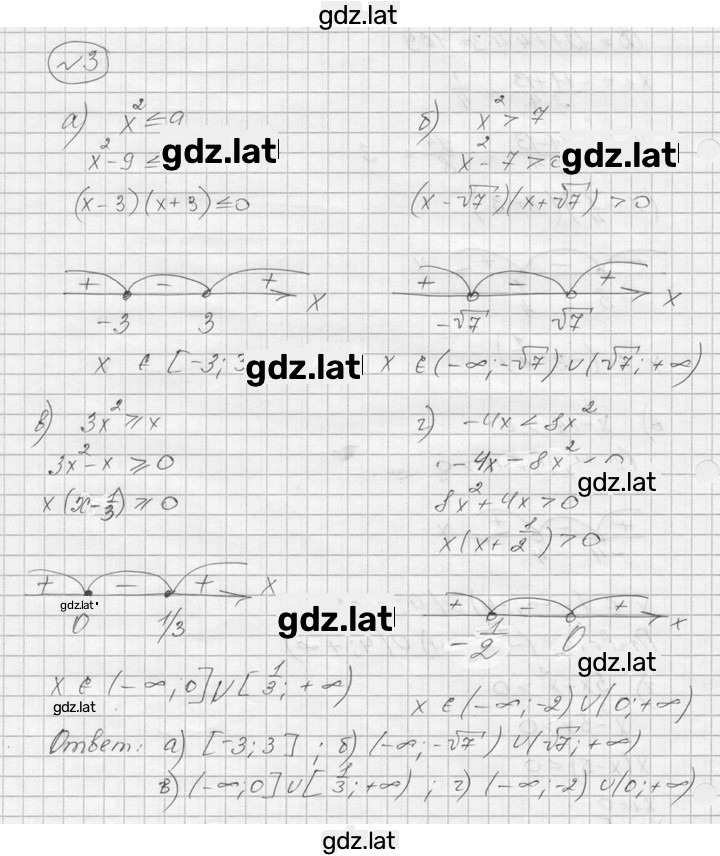 gdz.lat
№3
а) x² ≤ 9
x² - 9 ≤
gdz.lat
(x - 3)(x + 3) ≤ 0
+ - + x
-3 3
x ∈ [-3; 3
gdz.lat
б) x² > 7
x² - 7 > 0
gdz.lat
(x - √7)(x + √7) > 0
+ - + x
-√7 √7
x ∈ (-∞; -√7) ∪ (√7; +∞)
в) 3x² ≥ x
3x² - x ≥ 0
x(x - 1/3) ≥ 0
+ - + x
gdz.lat
0 1/3
gdz.lat
x ∈ (-∞; 0] ∪ [1/3; +∞)
gdz.lat
г) -4x < 8x²
-4x - 8x² < 0
gdz.lat
8x² + 4x > 0
x(x + 1/2) > 0
+ - + x
-1/2 0
gdz.lat
x ∈ (-∞; -2) ∪ (0; +∞)
Ответ: а) [-3; 3]; б) (-∞; -√7) ∪ (√7; +∞)
в) (-∞; 0] ∪ [1/3; +∞); г) (-∞; -2) ∪ (0; +∞)
gdz.lat